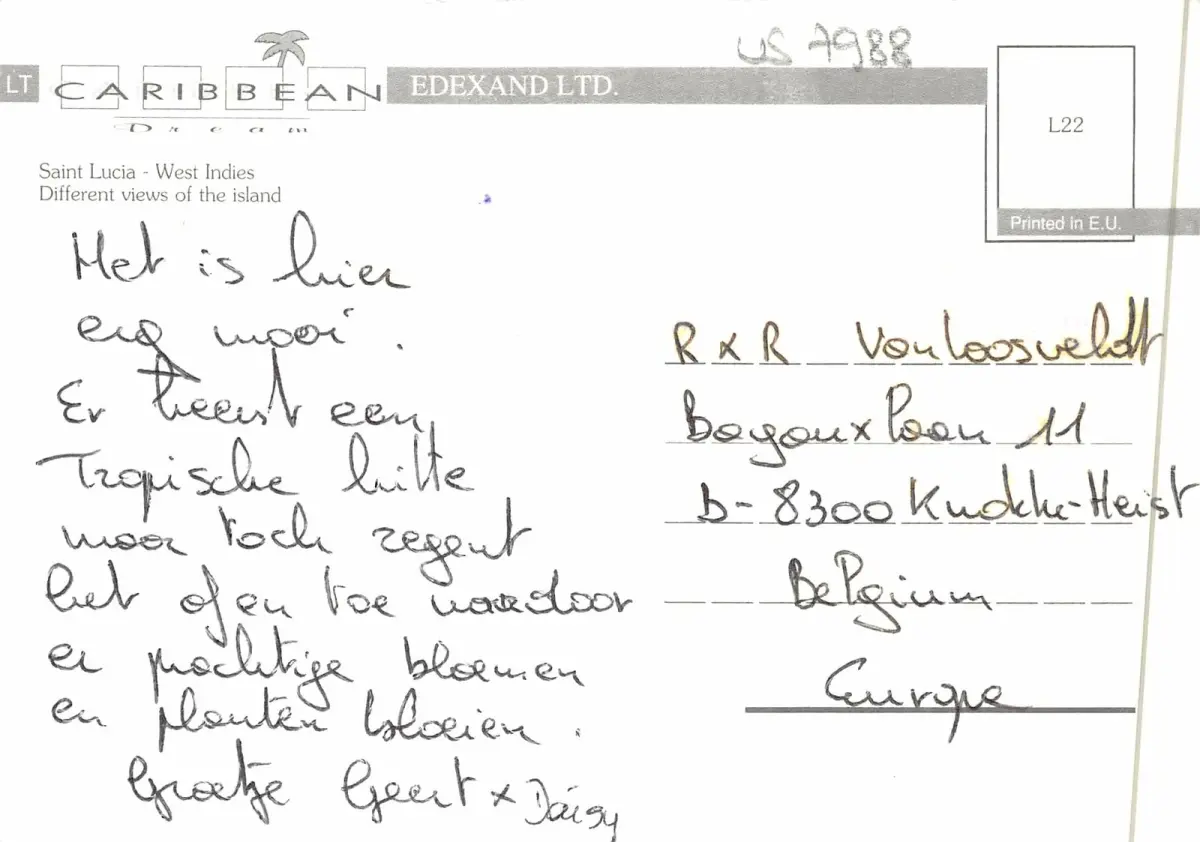 US 7988
LT CARIBBEAN
Dream
EDEXAND LTD.
L22
Printed in E.U.
Saint Lucia - West Indies
Different views of the island
Het is hier
erg mooi.
Er heerst een
Tropische hitte
maar toch regent
het af en toe waardoor
er prachtige bloemen
en planten bloeien.
Groetje Geert x Daisy
R x R Vanloosveldt
Bayauxlaan 11
B-8300 Knokke-Heist
Belgium
Europe